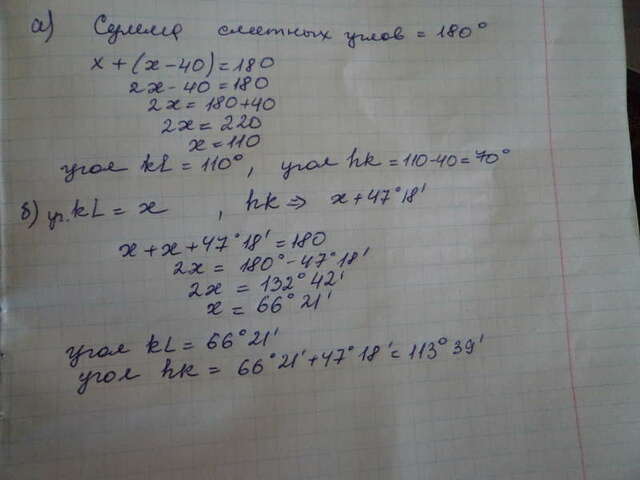 а) Сумма смежных углов = 180°
x + (x - 40) = 180
2x - 40 = 180
2x = 180 + 40
2x = 220
x = 110
угол kL = 110°, угол hk = 110-40 = 70°
б) уг. kL = x , hk ⇒ x + 47°18'
x + x + 47°18' = 180
2x = 180° - 47°18'
2x = 132°42'
x = 66°21'
угол kL = 66°21'
угол hk = 66°21' + 47°18' = 113°39'